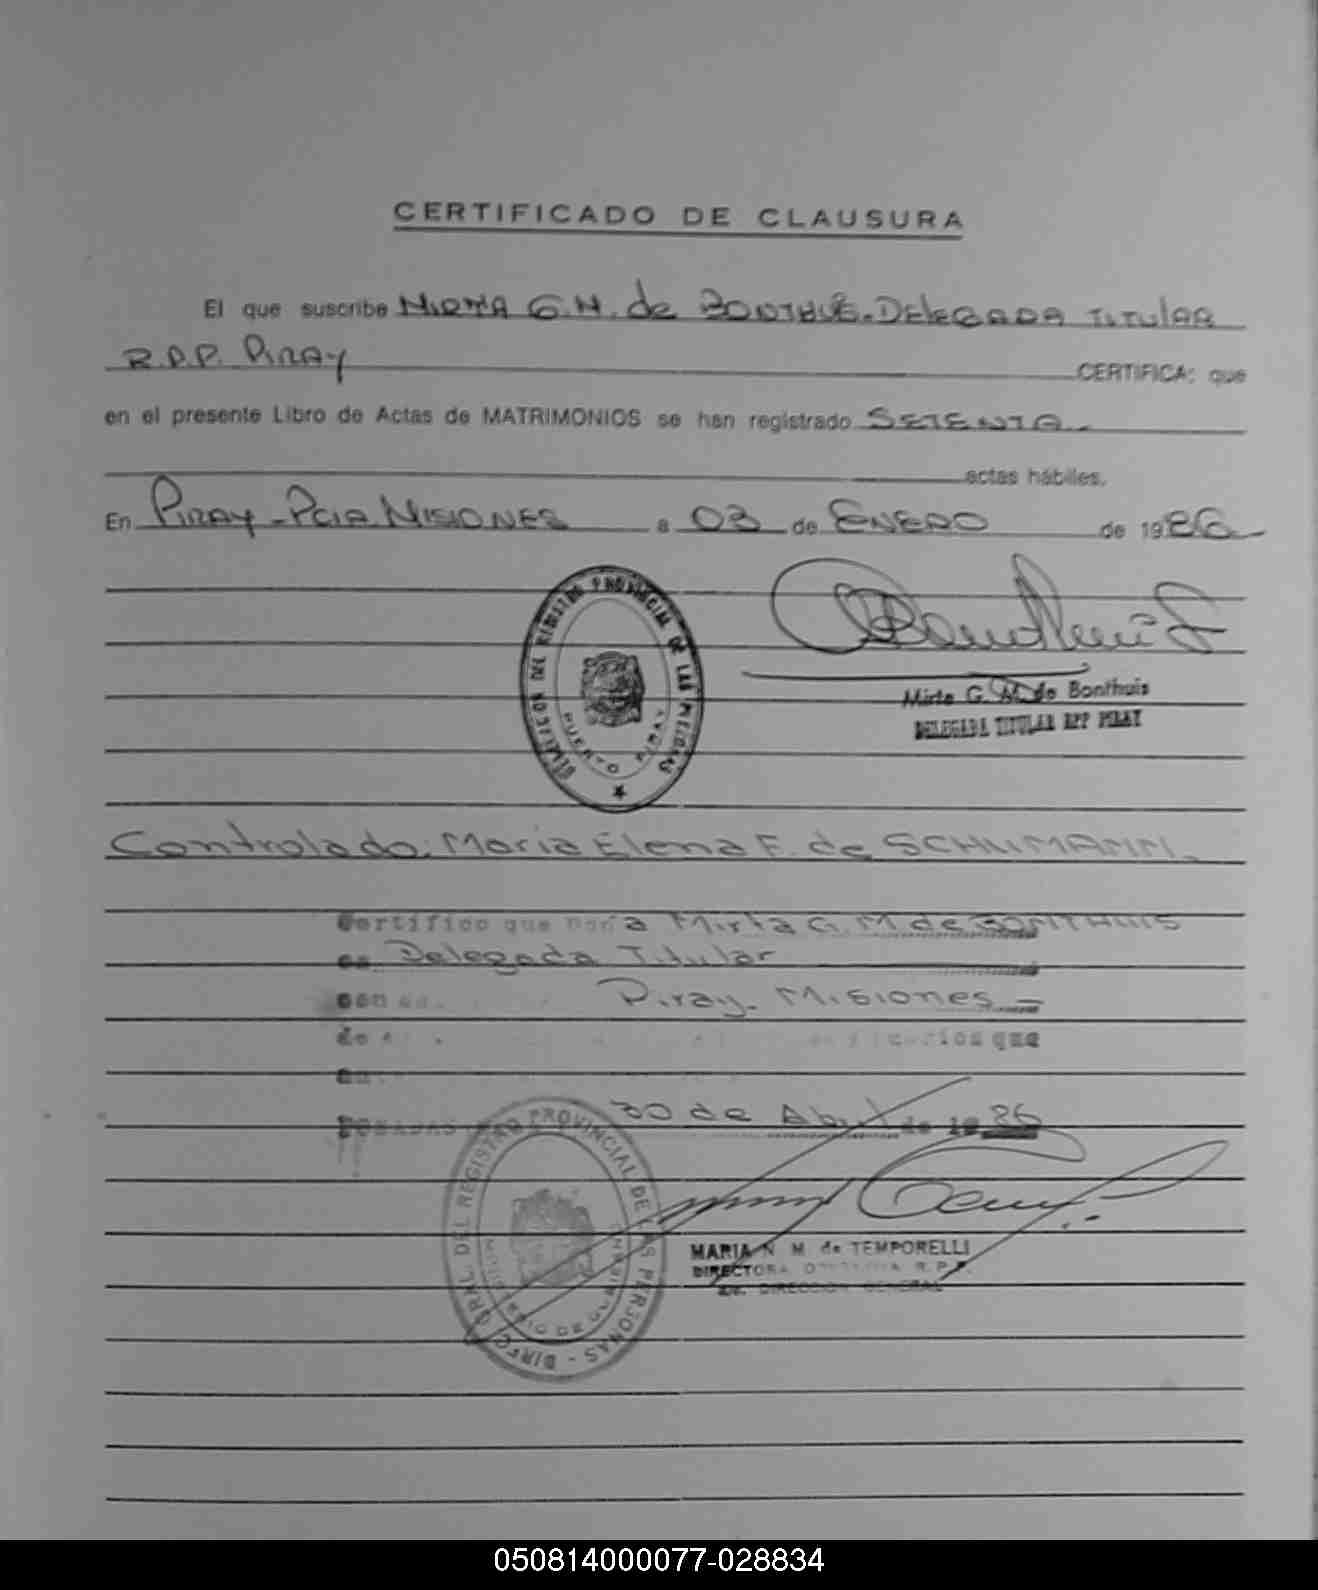 CERTIFICADO DE CLAUSURA
El que suscribe MIRTA G.M. de BONTHUIS. DELEGADA TITULAR
R.P.P. PIRAY CERTIFICA: que
en el presente Libro de Actas de MATRIMONIOS se han registrado SETENTA.
actas hábiles.
En PIRAY - PCIA. MISIONES a 03 de ENERO de 1986
DELEGACION DEL REGISTRO PROVINCIAL DE LAS PERSONAS
PUERTO PIRAY
Mirta G. M. de Bonthuis
DELEGADA TITULAR RPP PIRAY
Controlado: Maria Elena F. de SCHUMANN.
Certifico que Doña Mirta G. M de BONTHUIS
es Delegada Titular
con Piray - Misiones -
de que
POSADAS 30 de Abril de 1986
DIREC. GRAL. DEL REGISTRO PROVINCIAL DE LAS PERSONAS
MINISTERIO DE GOBIERNO
MARIA N. M. de TEMPORELLI
DIRECTORA R.P.P.
DIRECCION GENERAL
050814000077-028834